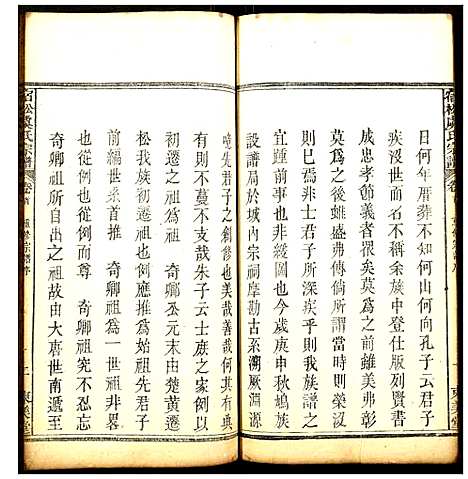 日何年厝葬不知何山何向孔子云君子
疾没世而名不稱故族中登仕版列賢書
以及忠臣孝子節義者不少前雖美弗彰
莫爲之後雖盛弗傳倘所謂
則已焉非士君子
宜踵前事也今歲庚申秋鳩族
設譜局於城內宗祠摩勘古系溯厥淵源
噫先君子之創修也美哉善哉何其有典
有則不蔓不支哉朱子云士族之家
奇卿祖公元末由楚黃遷
松我族初遷祖也例應推爲一世祖先君子
前編世系奇卿祖爲一世祖非
始祖也從例而尊 奇卿祖究不忍忘
奇卿祖所自出之祖故由大唐世南遞至
宿松虞氏宗譜
卷首
東美堂
宿松虞氏宗譜
東美堂